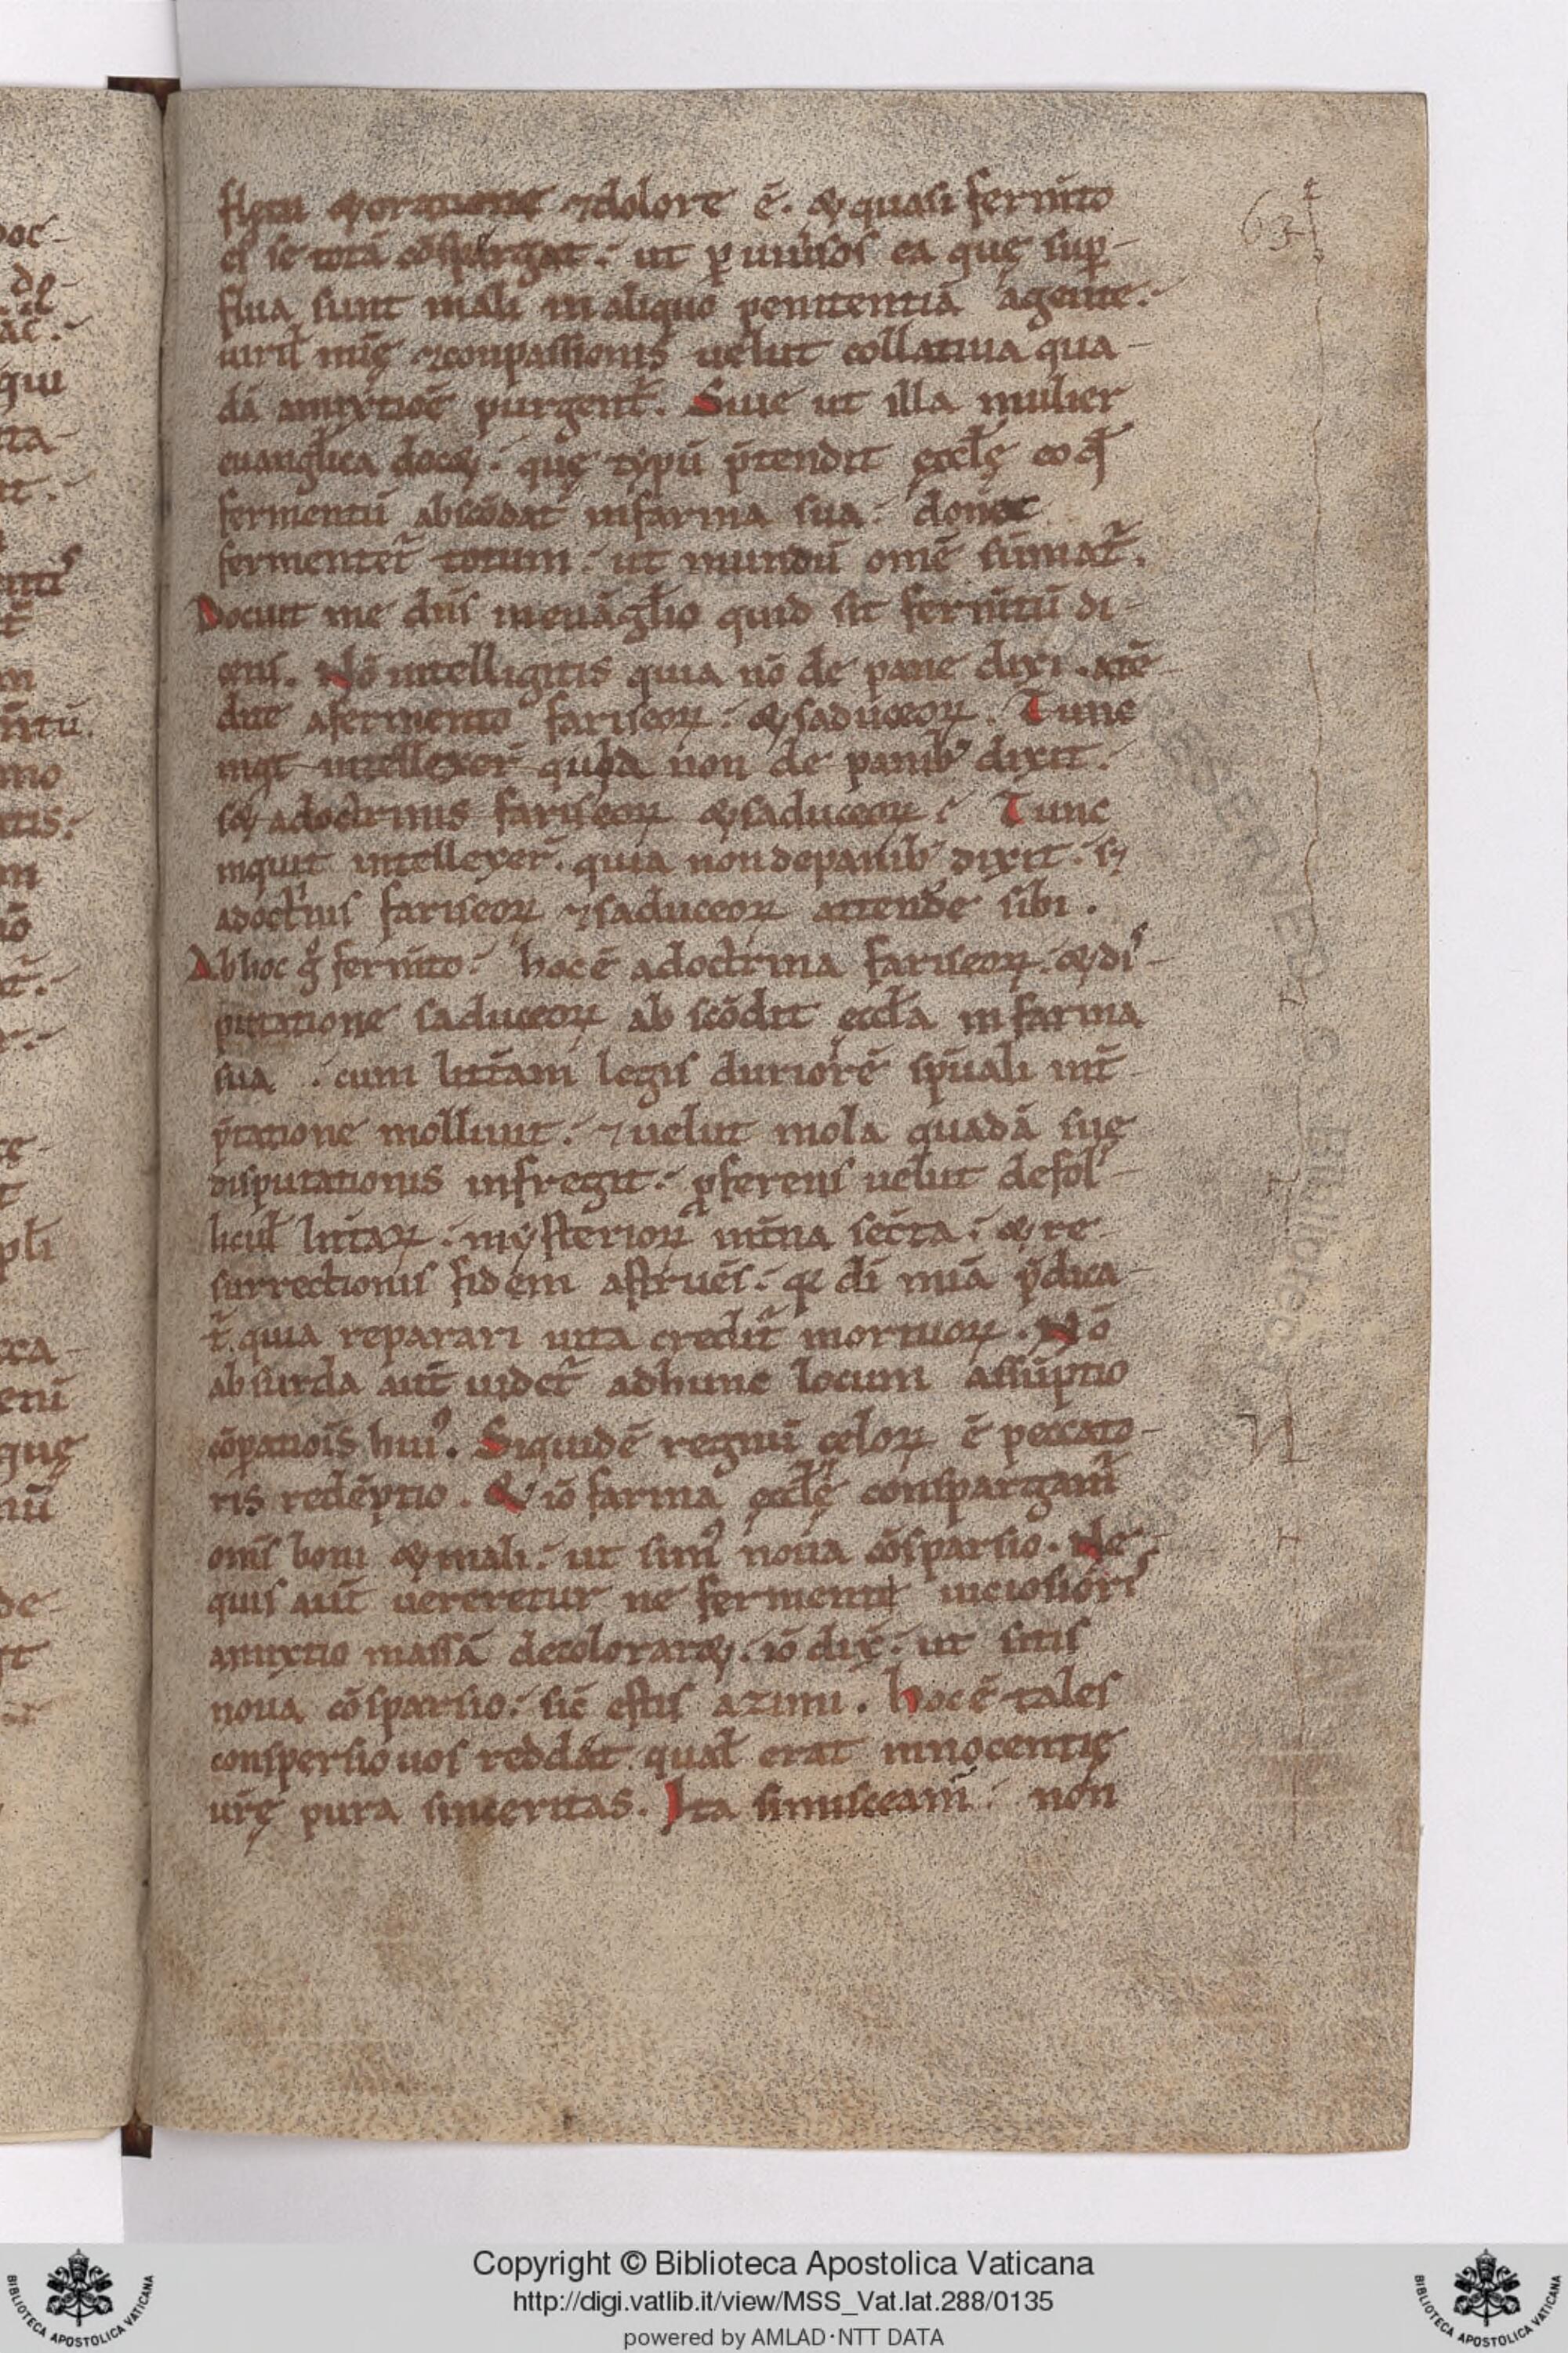 flętu &oratione ⁊dolore ē. &quasi fermto
ei se totā cōspargat. ut ꝑ uniuͥsos ea quę suꝑ-
flua sunt mali inaliquo penitentiā agente.
uiril mię ⁊conpassionis uelut collatiua qua-
dā amixtioē purgent᷑. Siue ut illa mulier
euanglica docet. quę typū p̄tendit ęcclę eo qđ
fermentū abscōdat infarina sua. donec
fermentet᷑ totum. ut mundū omē sūmat᷑.
Docuit me dn̄s ineuāglio quid sit fermtū di-
cens. Nō intelligitis quia nō de pane dixi. atē-
dite afermento fariseoꝝ. &saduceoꝝ. Tunc
inqt intellexer̄ quod non de panib; dixit.
sed adoctrinis fariseoꝝ &saduceoꝝ. Tunc
inquit intellexer̄. quia nondepanib; dixit. sꝫ
adoctrinis fariseoꝝ ⁊saduceoꝝ attende sibi.
Abhoc g̊ fermto. hocē adoctrina fariseoꝝ. &dis-
putatione saduceoꝝ ab scōdit eccla in farina
sua. cum littām legis duriorē sp̄uali int̄-
p̄tatione molliuit. ⁊uelut mola quadā suę
disputationis infregit. ꝓferens uelut defol-
licul littaꝝ. mysterioꝝ int̄na secr̄ta. & re-
surrectionis fidem astruēs. q̨ di miā p̄dica-
t᷑. quia reparari uita credit᷑ mortuoꝝ. Nō
absurda aut̄ uidet᷑ adhunc locum assūptio
cōpationis hui᷒. Siquidē regnū celoꝝ ē peccato-
ris redēptio. & iō farina ęcclę conspargam᷒
om̄s boni &mali. ut sim᷒ noua cōsparsio. Ne
quis aut̄ uereretur ne fermenti uiciosioris
amixtio massā decoloraret. iō dix̄. ut sitis
noua cōsparsio. sic̄ estis azimi. hocē tales
conspersio uos reddat. qual erat innocentię
ur̄ę pura sinceritas. Ita simisceam᷒. non
63
N
Copyright © Biblioteca Apostolica Vaticana
http://digi.vatlib.it/view/MSS_Vat.lat.288/0135
powered by AMLAD·NTT DATA
BIBLIOTECA APOSTOLICA VATICANA
BIBLIOTECA APOSTOLICA VATICANA